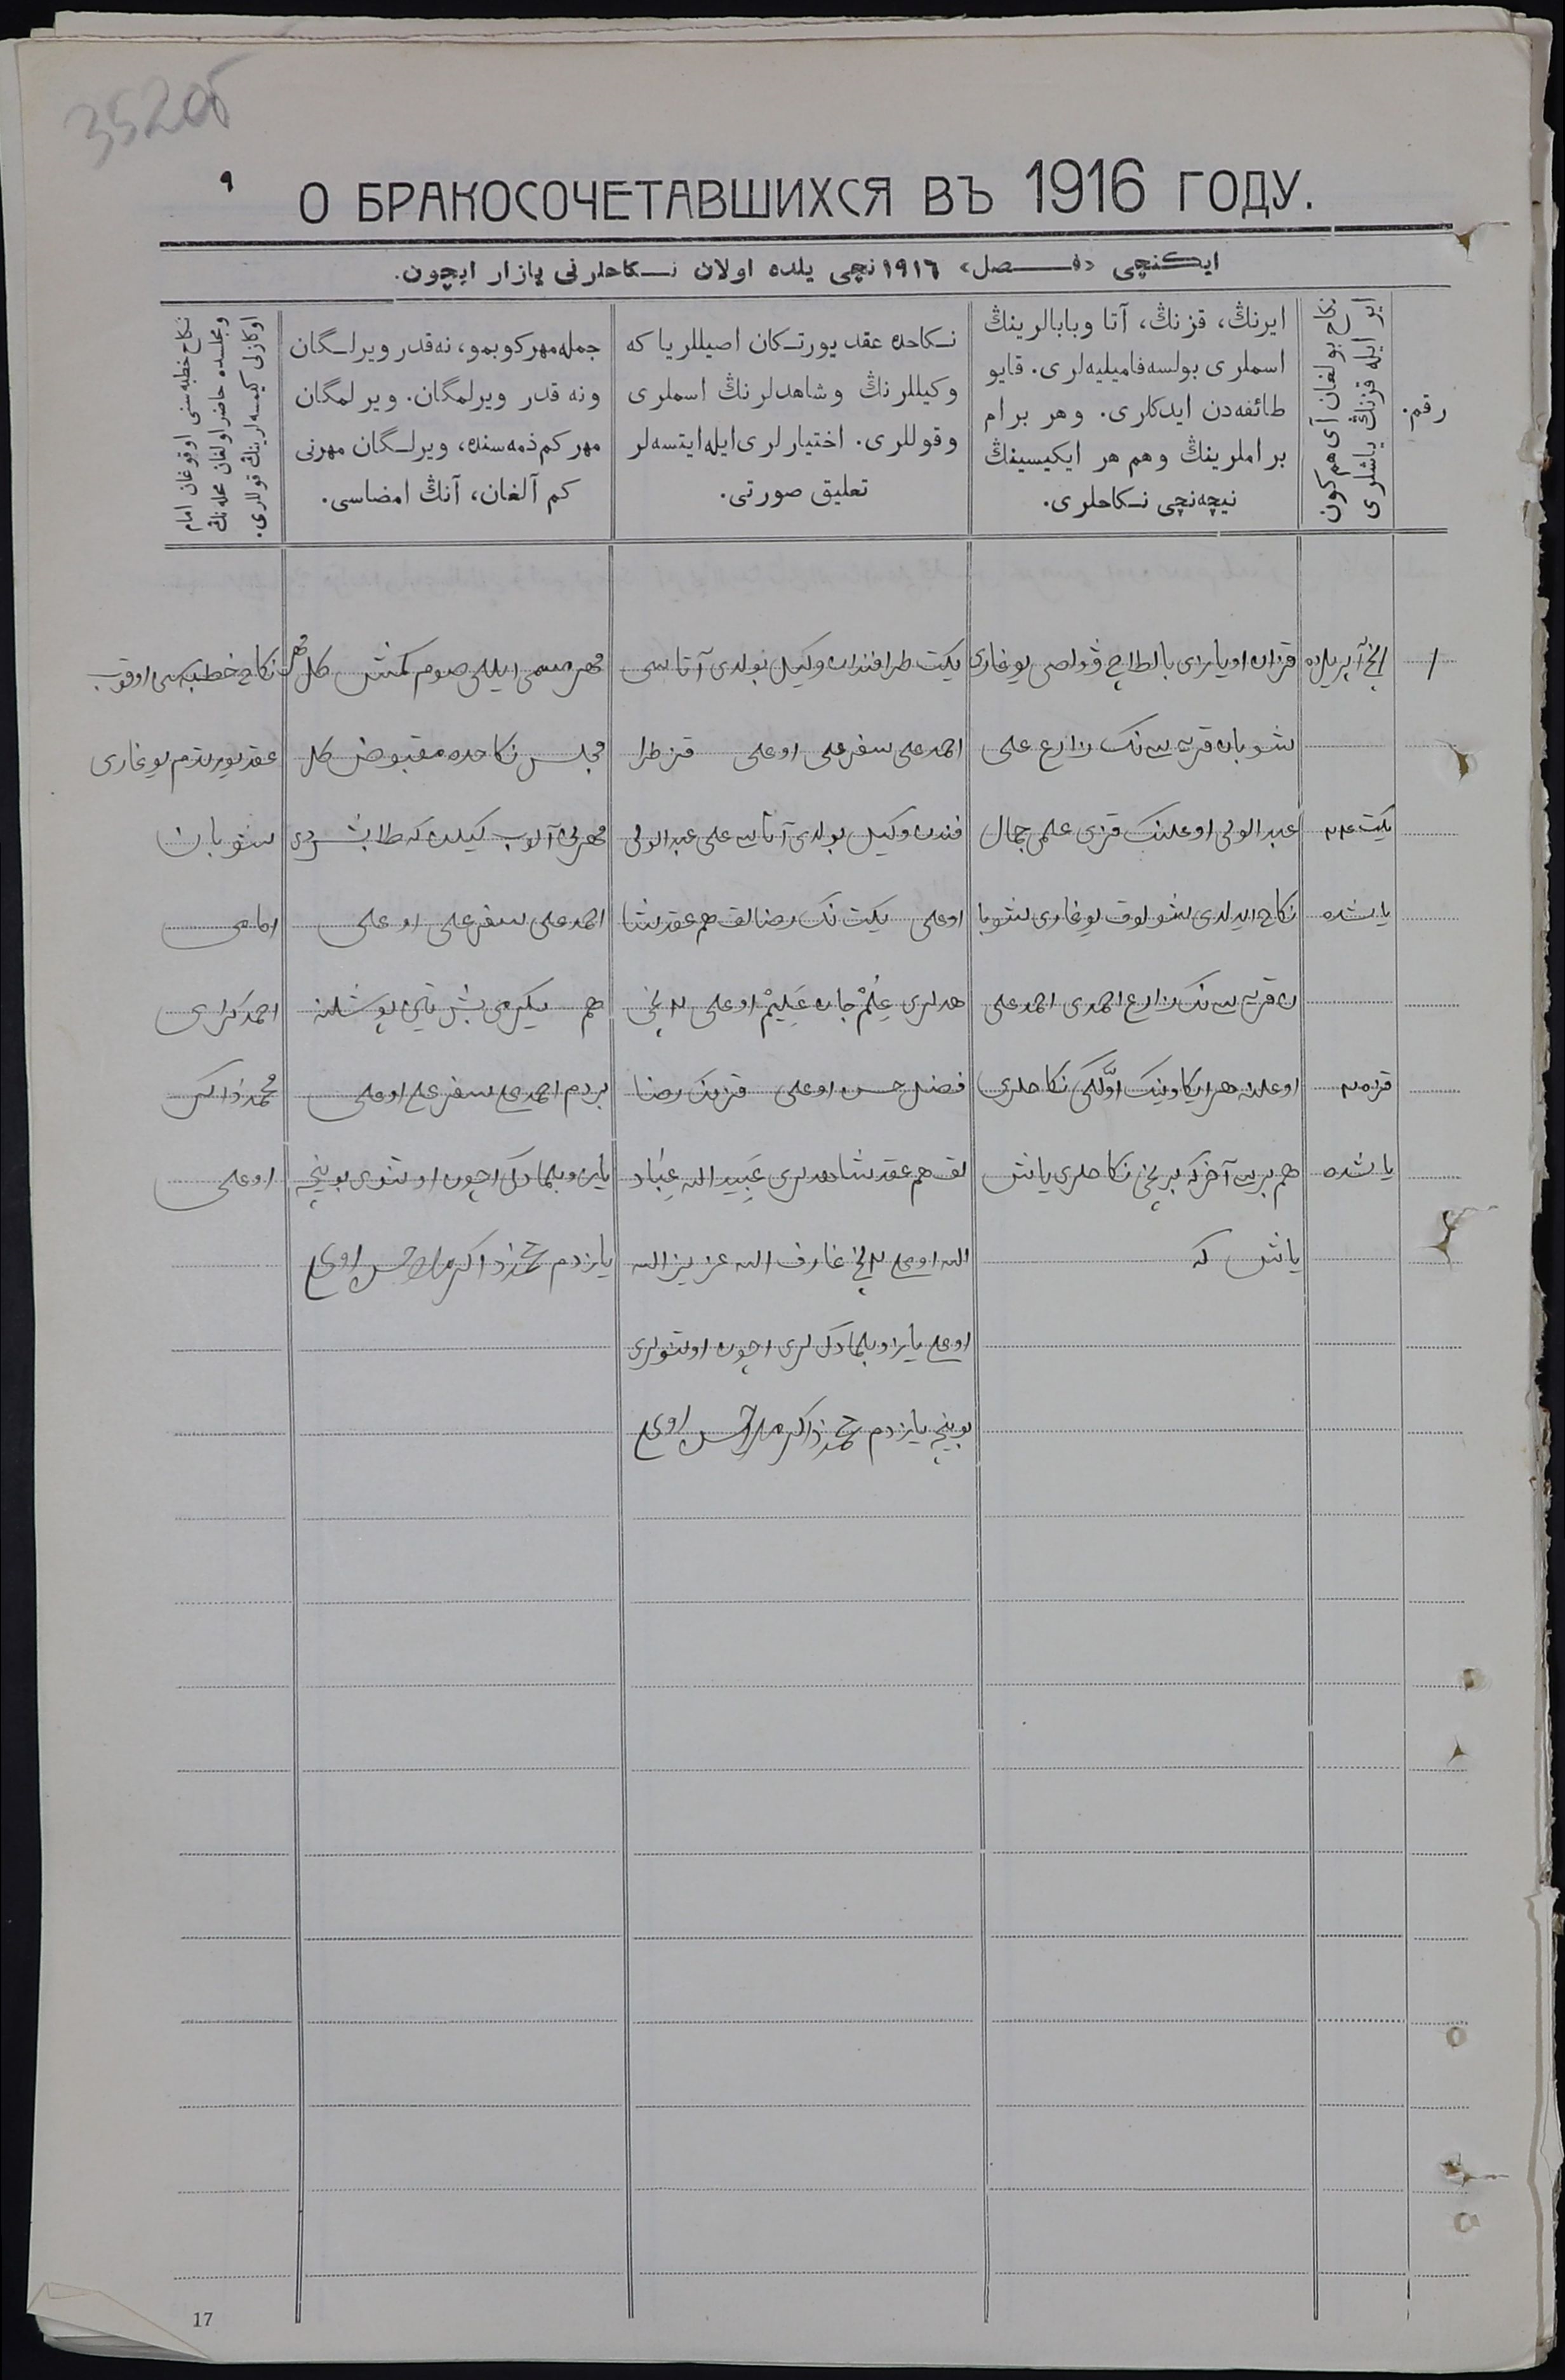 352об
٩
О БРАКОСОЧЕТАВШИХСЯ ВЪ 1916 ГОДУ.
ایکنچی «فصل» ١٩١٦ نچی یلده اولان نکاحلرنی یازار ایچون.
رقم.
نکاح بولغان آی هم کون
ایر ایله قزنڭ یاشلری
ایرنڭ، قزنڭ، آتا وبابالرینڭ
اسملری بولسه فامیلیه‌لری. قایو
طائفه‌دن ایدکلری. وهر برام
براملرینڭ وهم هر ایکیسینڭ
نیچه‌نچی نکاحلری.
نکاحده عقد یورتکان اصیللریا که
وکیللرنڭ وشاهدلرنڭ اسملری
وقوللری. اختیارلری ایله ایتسه‌لر
تعلیق صورتی.
جمله مهر کوبمو، نه‌قدر ویرلگان
ونه قدر ویرلمگان. ویرلمگان
مهر کم ذمه‌سنده، ویرلگان مهرنی
کم آلغان، آنڭ امضاسی.
نکاح خطبه‌سنی اوقوغان امام
ومجلسده حاضر اولغان محله‌نڭ
اوکازلی کیمسه‌لرینڭ قوللری.
١
آپریلده
یکت
یاشده
قز
یاشده
قزان اویازی بالطاچ ڤولصی یوغاری
شوبان قریه سی نک زارع علی
عبدالولی اوغلینک قزی علمی جمال
نکاح ایدلدی شولوق یوغاری شوبا
ن قریه سی نک زارع احمدی احمدعلی
اوغلنه هر ایکاوینک اوّلگی نکاحلری
هم بریسی آخرکه برنچی نکاحلری یاش
یاش که
یکت طرافندان وکیل بولدی آتاسی
احمدعلی سفرعلی اوغلی قز طرا
فندن وکیل بولدی آتاسی علی عبدالولی
اوغلی یکت نک رضالق هم عقد شا
هدلری عِلمْ جان عَلِیمْ اوغلی ٢ نچی
فضل حسن اوغلی قزنک رضا
لق هم عقد شاهدلری عَبِید الله عِبَاد
الله اوغلی ٢ نچی عارف الله عزیزالله
اوغلی یازا بلمادکلری اچون اوتنولری
بوینچه یازدم محمد ذاکر ملا حسن اوغلی
مهر مسمی ایللی صوم کمش کل مهر
مجلس نکاحده مقبوض کل
مهرنی آلوب کیلن که طابشردی
احمدعلی سفرعلی اوغلی
هم یکرمی بش تین پوشلنه
بردم احمدعلی سفرعلی اوغلی
یازو بلمادکی اچون اوتنوی بوینچه
یازدم محمد ذاکر ملا حسن اوغلی
نکاح خطبه سی اوقوب
عقد یورتدم یوغاری
شوبان
امامی
احمد
محمد ذاکر
اوغلی
17